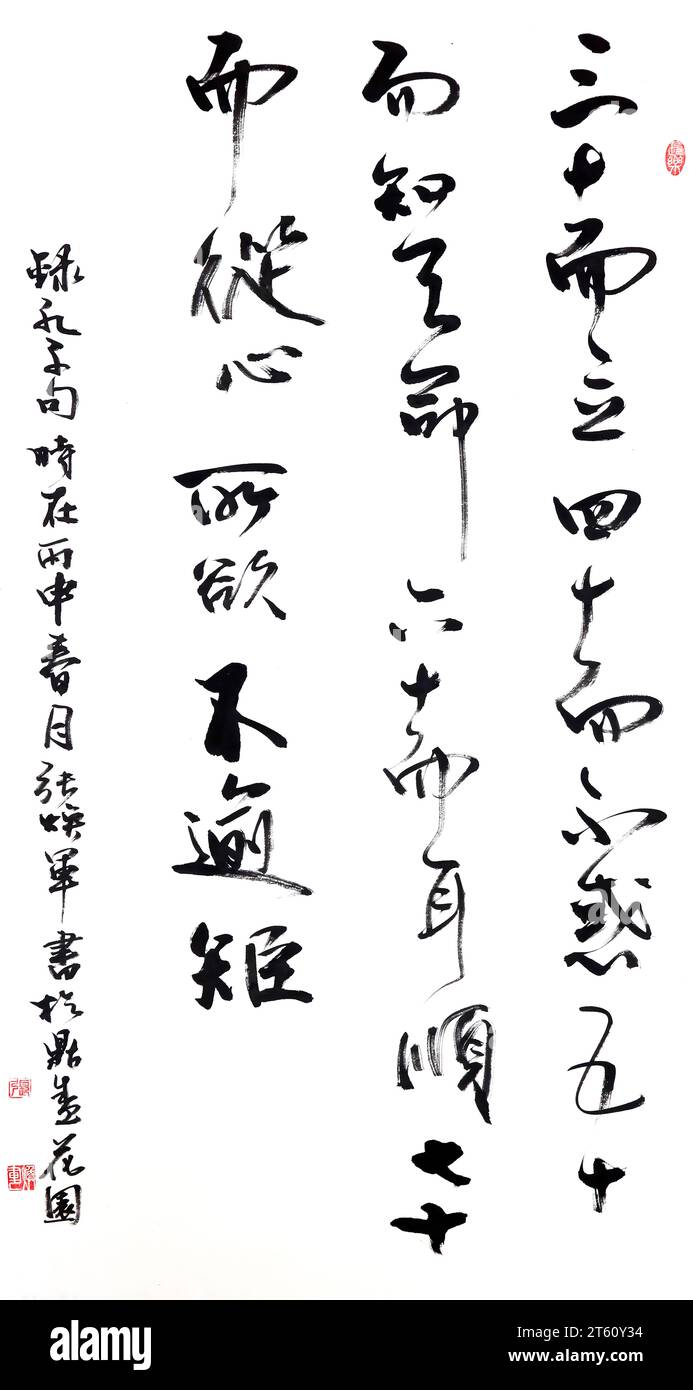 三十而立四十而不惑五十
而知天命六十而耳順七十
而從心所欲不逾矩
録孔子句時在丙申春月張煥軍書於鼎盛花園
alamy
Image ID: 2T60Y34
www.alamy.com